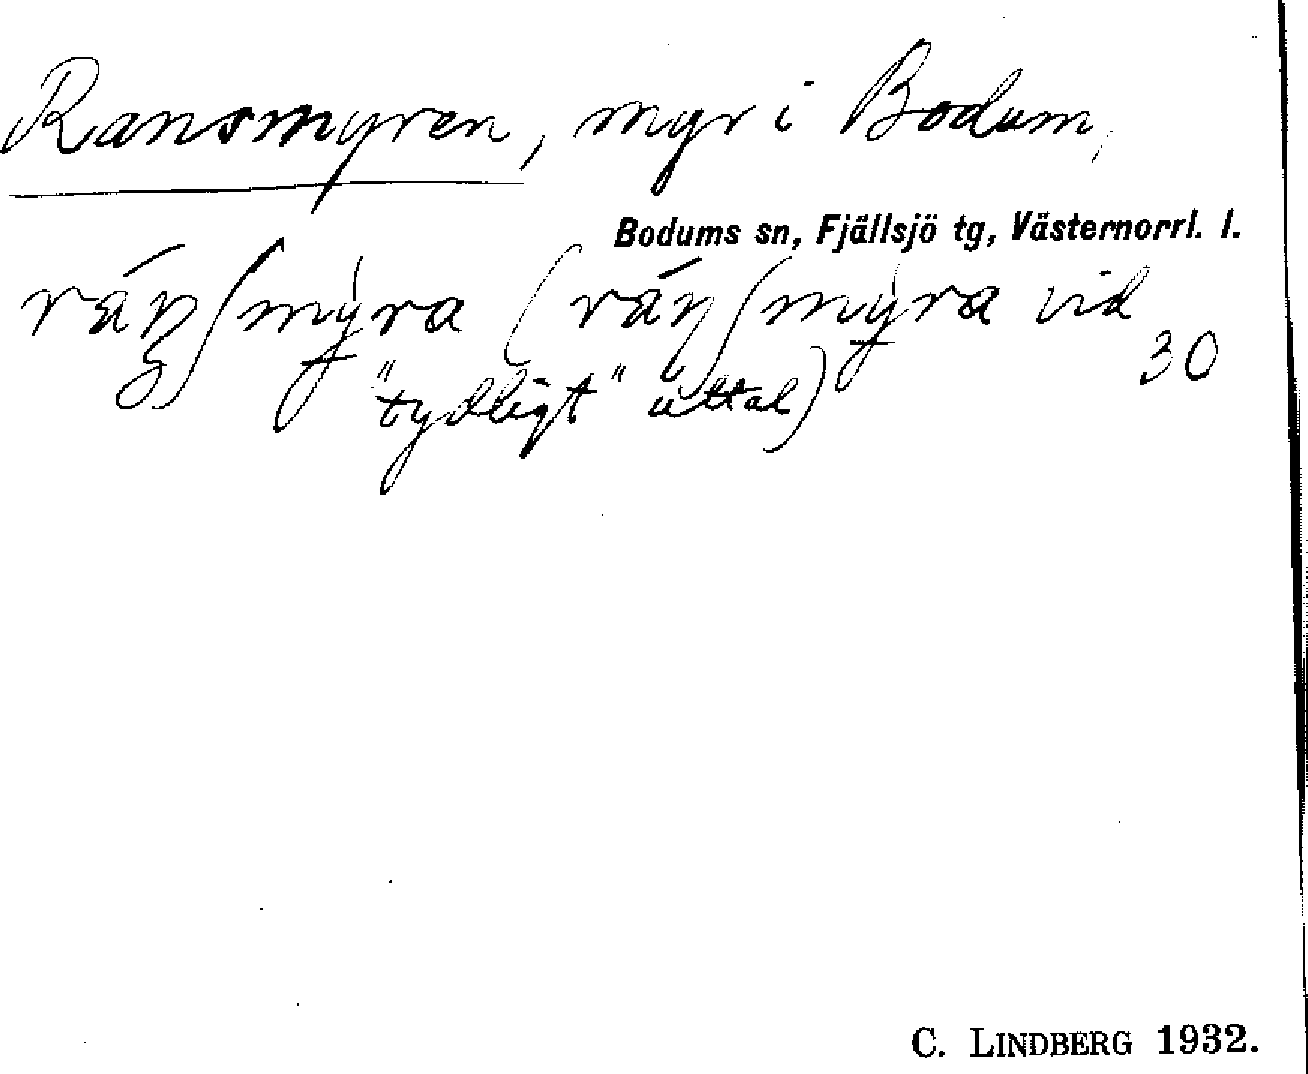 Ransmyren, myr i Bodum,
Bodums sn, Fjällsjö tg, Västernorrl. l.
vid
30
"tydligt" uttal)
C. LINDBERG 1932.